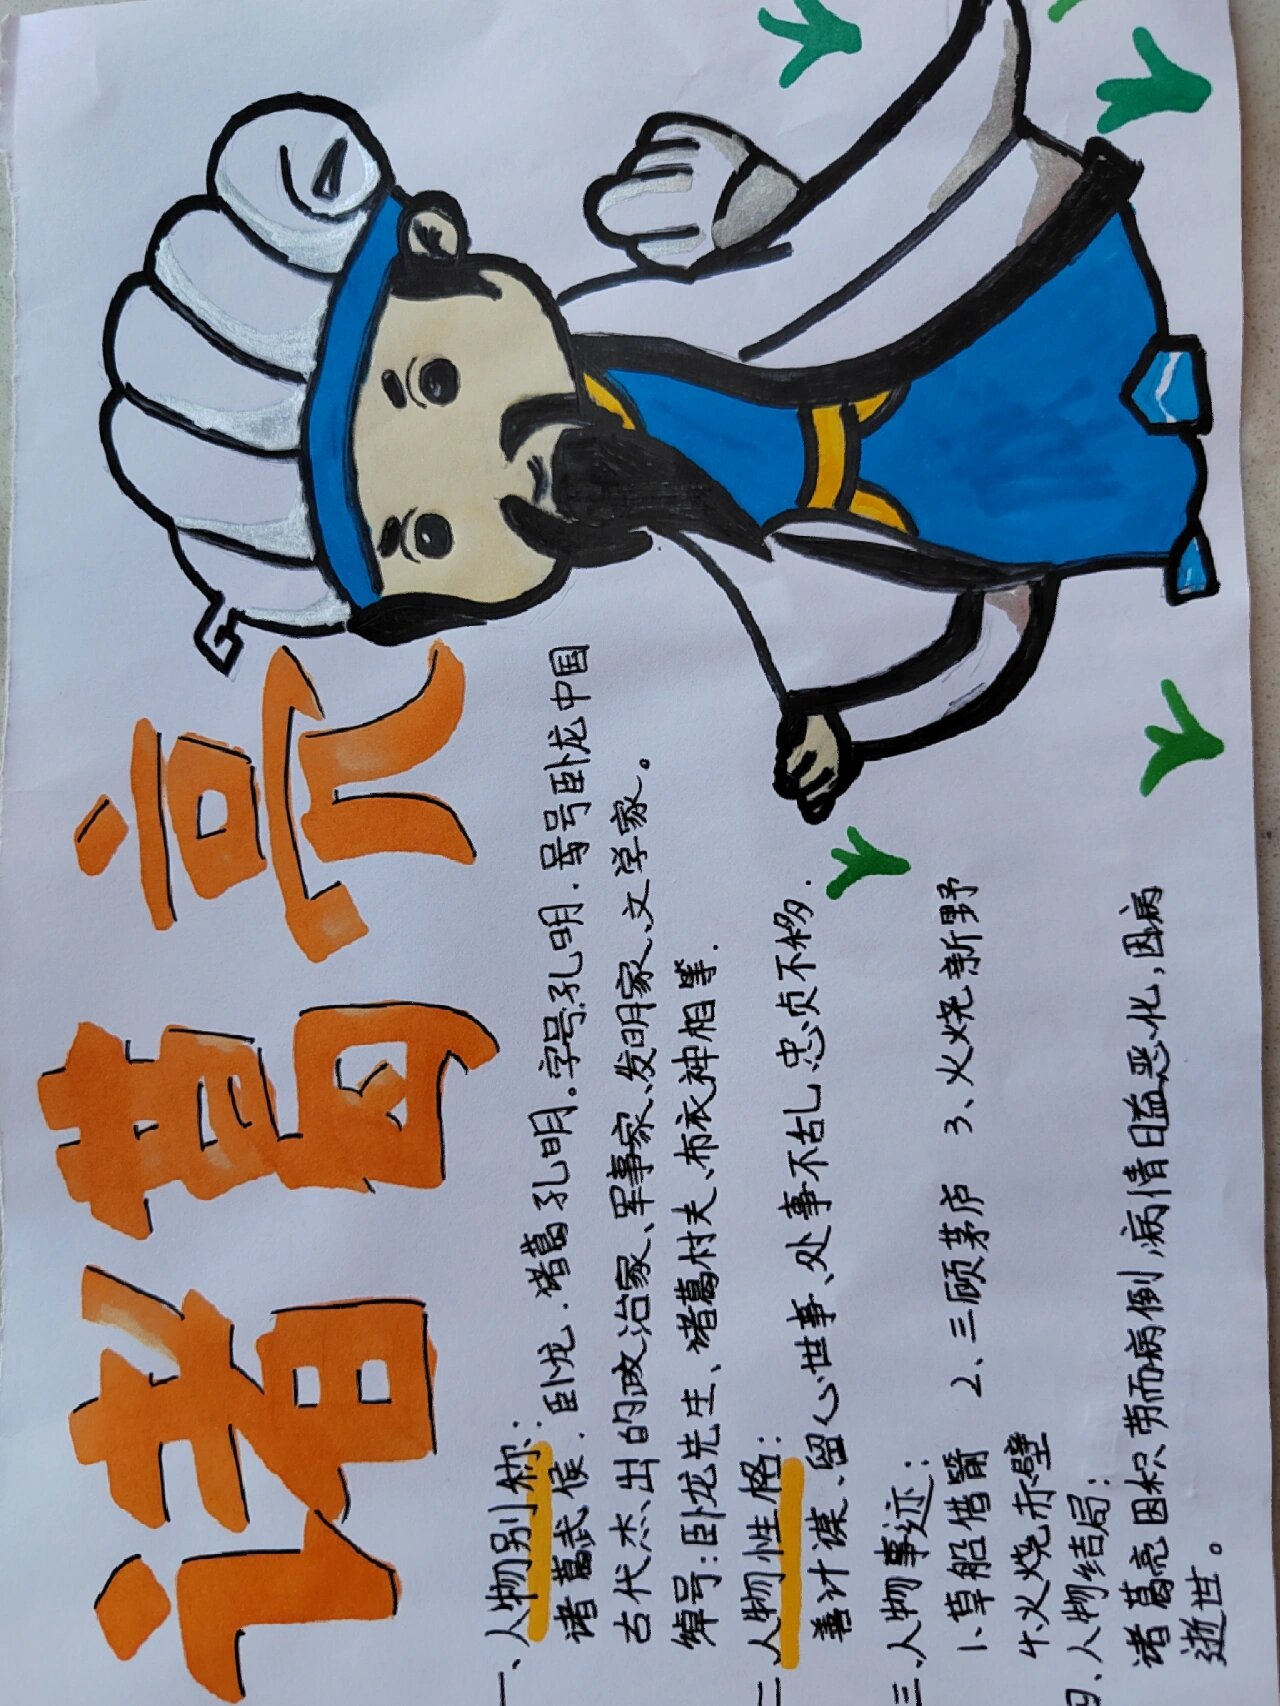 诸葛亮
一、人物别称:
诸葛武侯.卧龙.诸葛孔明。字号:孔明.号号卧龙中国
古代杰出的政治家、军事家、发明家、文学家。
绰号:卧龙先生、诸葛村夫、布衣神相等.
二、人物性格:
善计谋、留心世事、处事不乱忠贞不移.
三、人物事迹:
1、草船借箭 2、三顾茅庐 3、火烧新野
4、火烧赤壁
四、人物结局:
诸葛亮因积劳而病倒,病情日益恶化,因病
逝世。